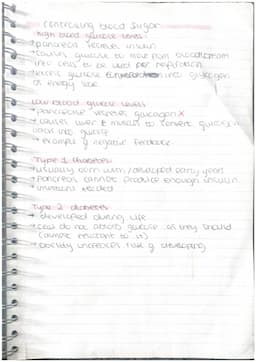 Controlling blood Sugar
high blood glucose levels
→ pancreas secretes insulin
→ causes glucose to move from bloodstream
into cells to be used for respiration
→ excess glucose into glycogen
as energy
Low blood glucose levels
→ pancreas secretes glucagon
→ causes liver & muscles to convert glycogen
back into
→ example of negative feedback
Type 1 diabetes
→ usually born with / developed early years
→ pancreas cannot produce enough insulin
→ needed
Type 2 diabetes
→ developed during life
→ do not absorb glucose as they should
( resistant to it)
→ obesity increases risk of developing